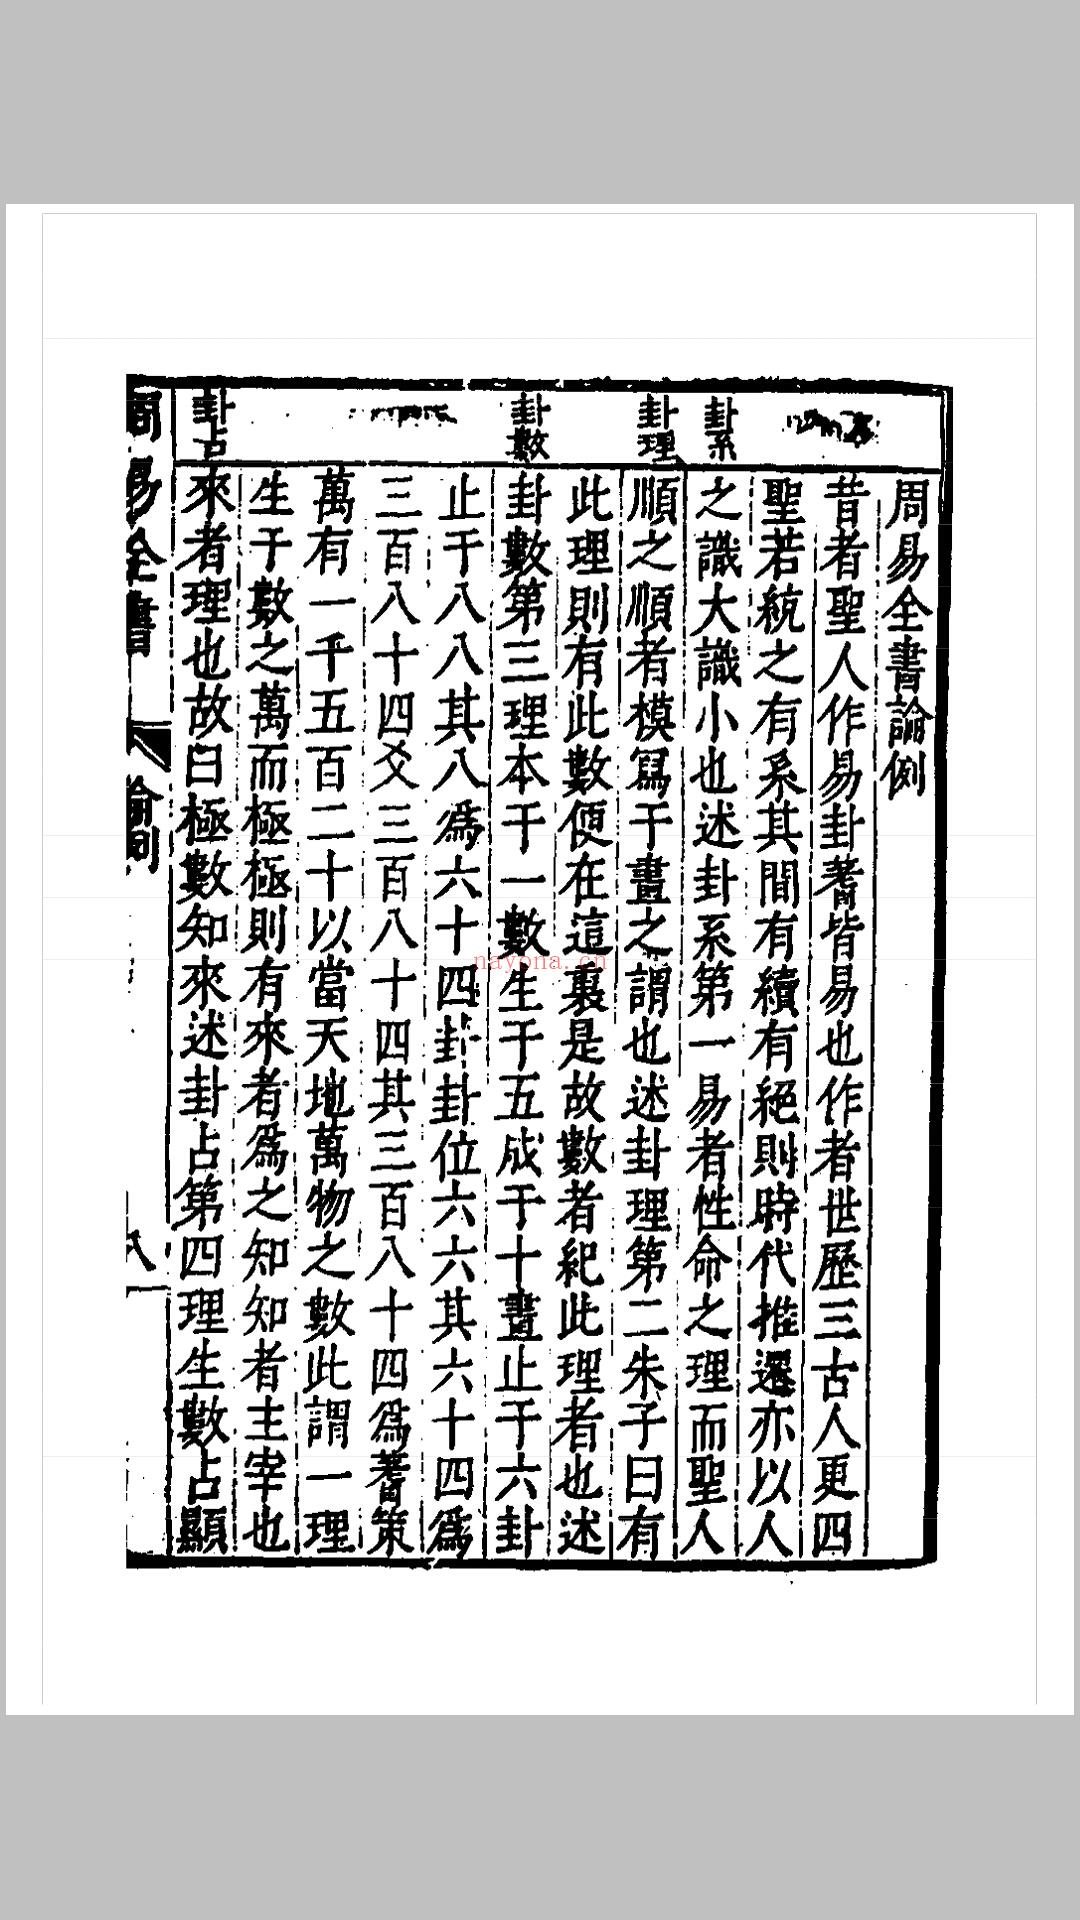 周易全書論例
昔者聖人作易卦蓍皆易也作者世歷三古人更四
聖若統之有系其間有續有絕則時代推遷亦以人
卦系
之識大識小也述卦系第一易者性命之理而聖人
卦理
順之順者模寫于畫之謂也述卦理第二朱子曰有
此理則有此數便在這裏是故數者紀此理者也述
卦數
卦數第三理本于一數生于五成于十畫止于六卦
止于八八其八爲六十四卦卦位六六其六十四爲
三百八十四爻三百八十四其三百八十四爲蓍策
萬有一千五百二十以當天地萬物之數此謂一理
生于數之萬而極極則有來者爲之知知者主宰也
卦占
來者理也故曰極數知來述卦占第四理生數占顯
周易全書
論例
八
nayona.cn